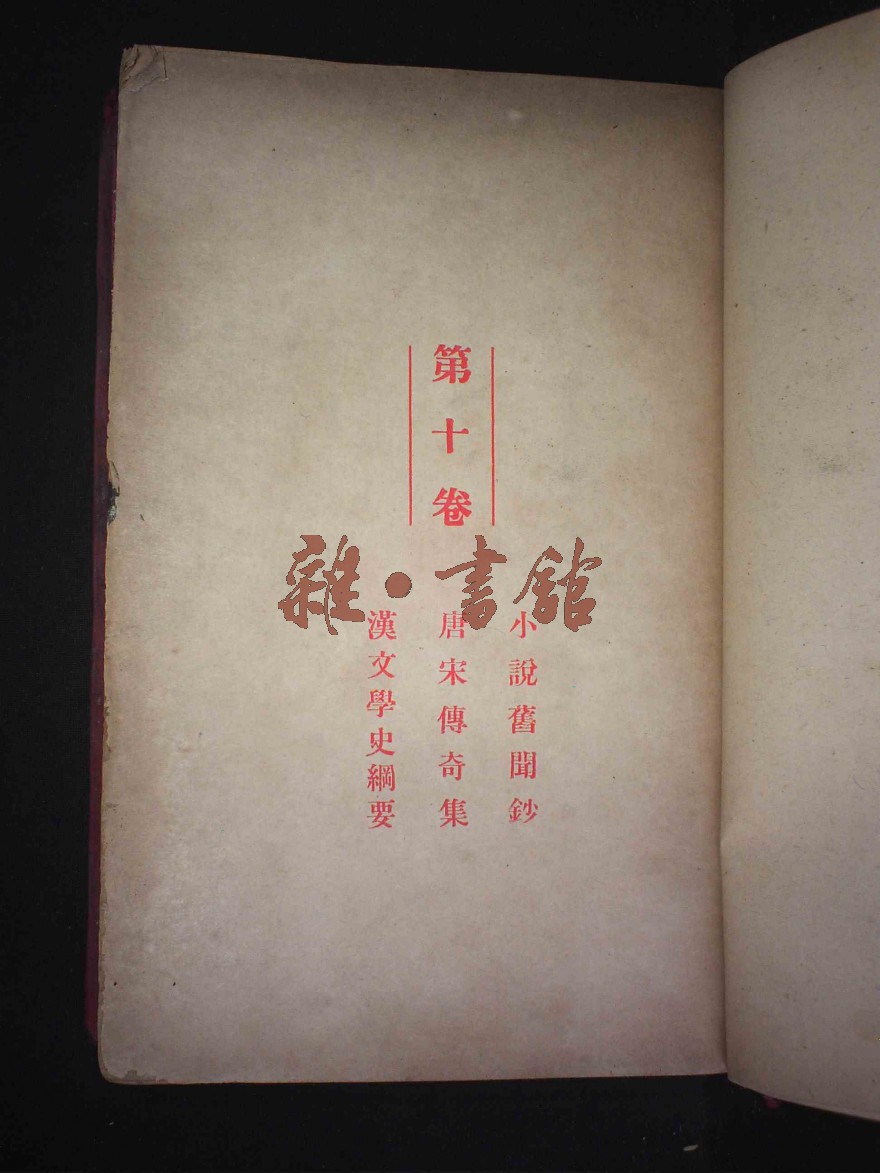 第十卷
小說舊聞鈔
唐宋傳奇集
漢文學史綱要
雜·書館